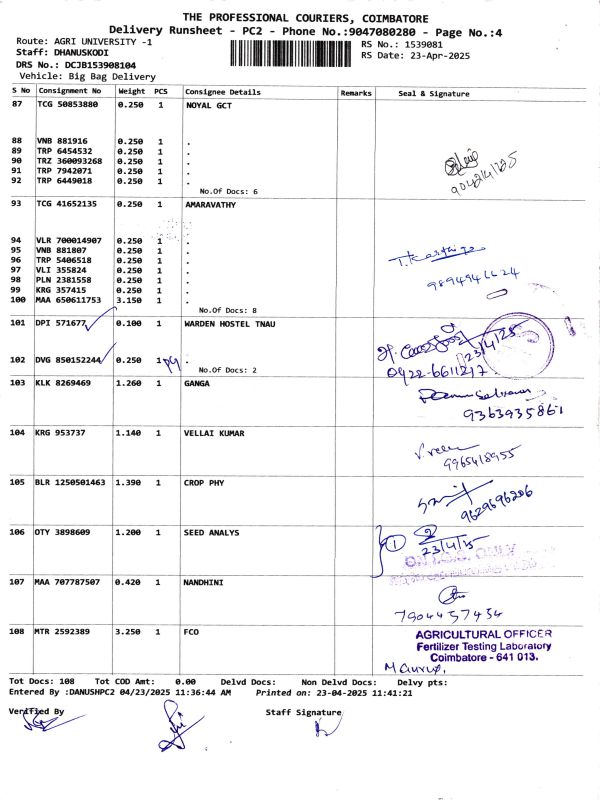 THE PROFESSIONAL COURIERS, COIMBATORE
Delivery Runsheet - PC2 - Phone No.:9047080280 - Page No.:4
Route: AGRI UNIVERSITY -1
RS No.: 1539081
Staff: DHANUSKODI
RS Date: 23-Apr-2025
DRS No.: DCJB153908104
Vehicle: Big Bag Delivery
S No Consignment No Weight PCS Consignee Details Remarks Seal & Signature
87 TCG 50853880 0.250 1 NOYAL GCT
88 VNB 881916 0.250 1 .
89 TRP 6454532 0.250 1 .
90 TRZ 360093268 0.250 1 .
91 TRP 7942071 0.250 1 .
92 TRP 6449018 0.250 1 .
No.Of Docs: 6
93 TCG 41652135 0.250 1 AMARAVATHY
94 VLR 700014907 0.250 1 .
95 VNB 881807 0.250 1 .
96 TRP 5406518 0.250 1 .
97 VLI 355824 0.250 1 .
98 PLN 2381558 0.250 1 .
99 KRG 357415 0.250 1 .
100 MAA 650611753 3.150 1 .
No.Of Docs: 8
T. Karthiga
9894946624
101 DPI 571677 0.100 1 WARDEN HOSTEL TNAU
23/4/25
102 DVG 850152244 0.250 1 .
No.Of Docs: 2
0422-6611217
103 KLK 8269469 1.260 1 GANGA
9363935861
104 KRG 953737 1.140 1 VELLAI KUMAR
9965418955
105 BLR 1250501463 1.390 1 CROP PHY
9629696206
106 OTY 3898609 1.200 1 SEED ANALYS
1
23/4/25
107 MAA 707787507 0.420 1 NANDHINI
7904457454
108 MTR 2592389 3.250 1 FCO
AGRICULTURAL OFFICER
Fertilizer Testing Laboratory
Coimbatore - 641 013.
Tot Docs: 108 Tot COD Amt: 0.00 Delvd Docs: Non Delvd Docs: Delvy pts:
Entered By :DANUSHPC2 04/23/2025 11:36:44 AM Printed on: 23-04-2025 11:41:21
Verified By
Staff Signature